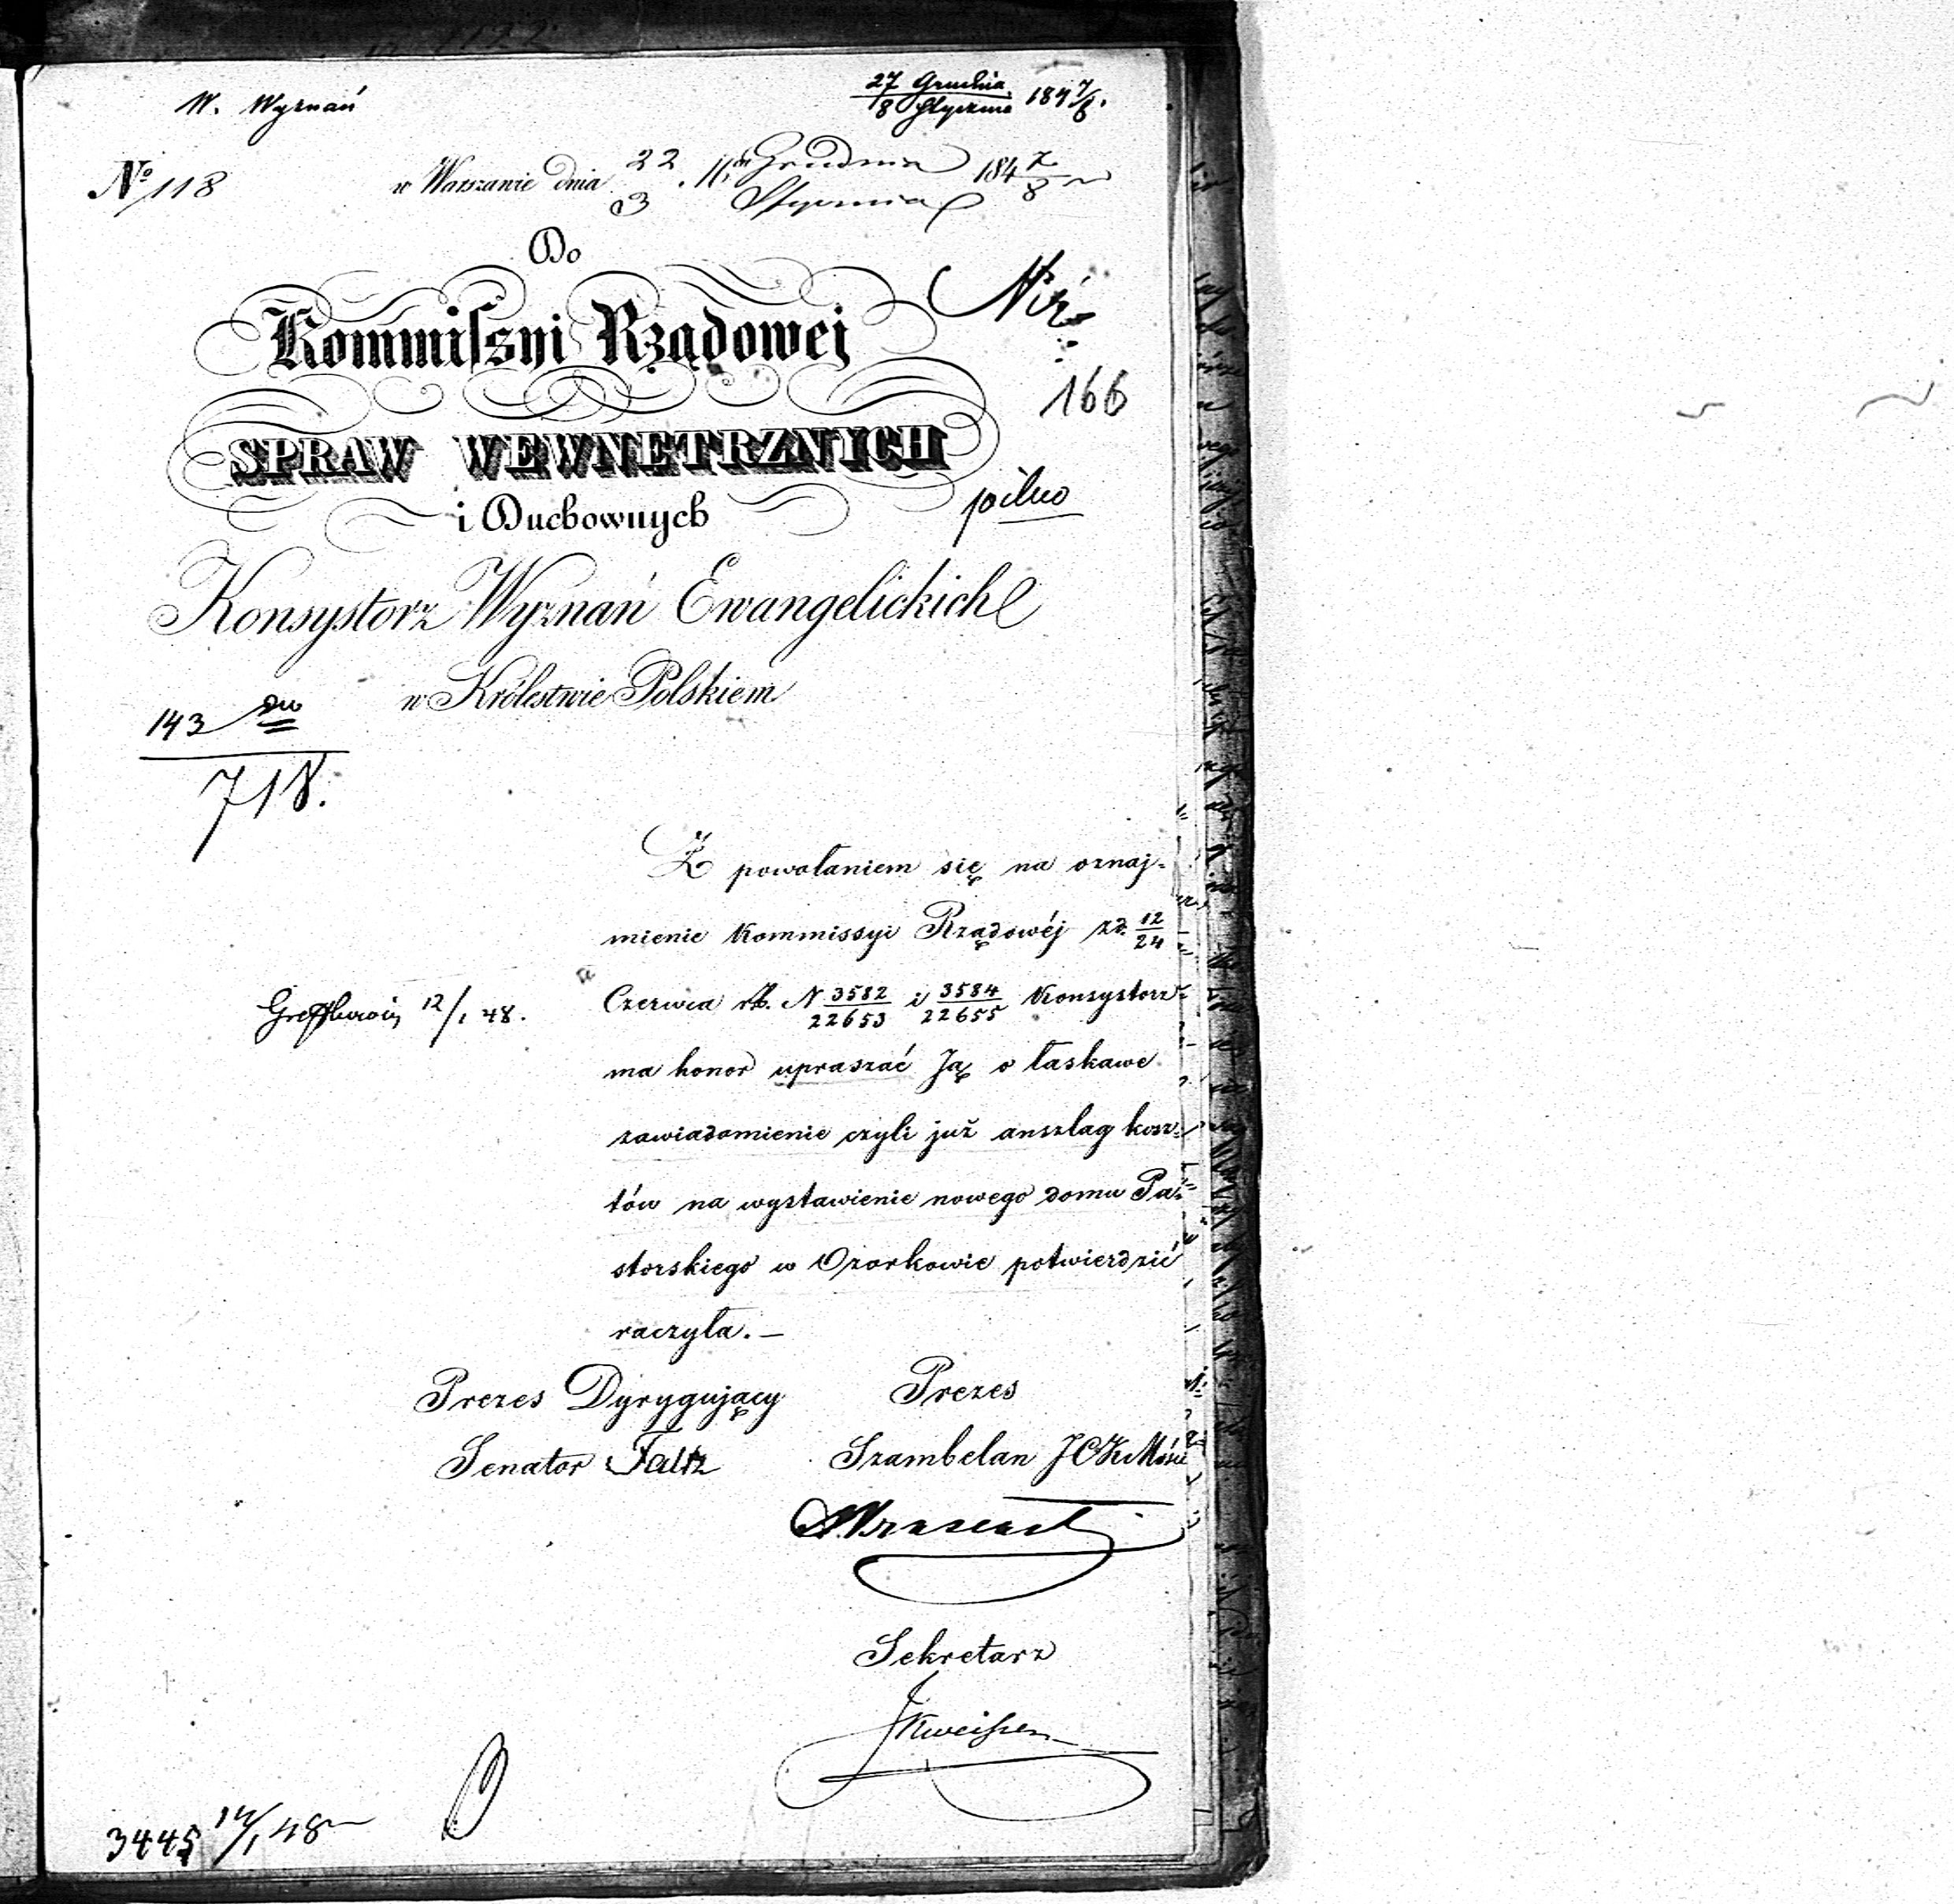 W. Wyznań
27 Grudnia
8 Stycznia 1847/8.
No 118
w Warszawie dnia 22 Grudnia 1847
3 Stycznia 8
Do
Kommissyi Rządowej
166
SPRAW WEWNETRZNYCH
pilno
i Duchownych
Konsystorz Wyznań Ewangelickich
w Królestwie Polskiem
143
718.
Z powołaniem się na oznaj-
mienie Kommissyi Rządowéj zd. 12/24
Czerwca rb. N 3582/22653 i 3584/22655 Konsystorz
12/1 48.
ma honor upraszać Ją o łaskawe
zawiadomienie czyli już anszlag kosz-
tów na wystawienie nowego domu Pa-
storskiego w Ozorkowie potwierdzić
raczyła.—
Prezes Dyrygujący Prezes
Senator Faltz Szambelan JCK Mości
Sekretarz
3445 14/1 48